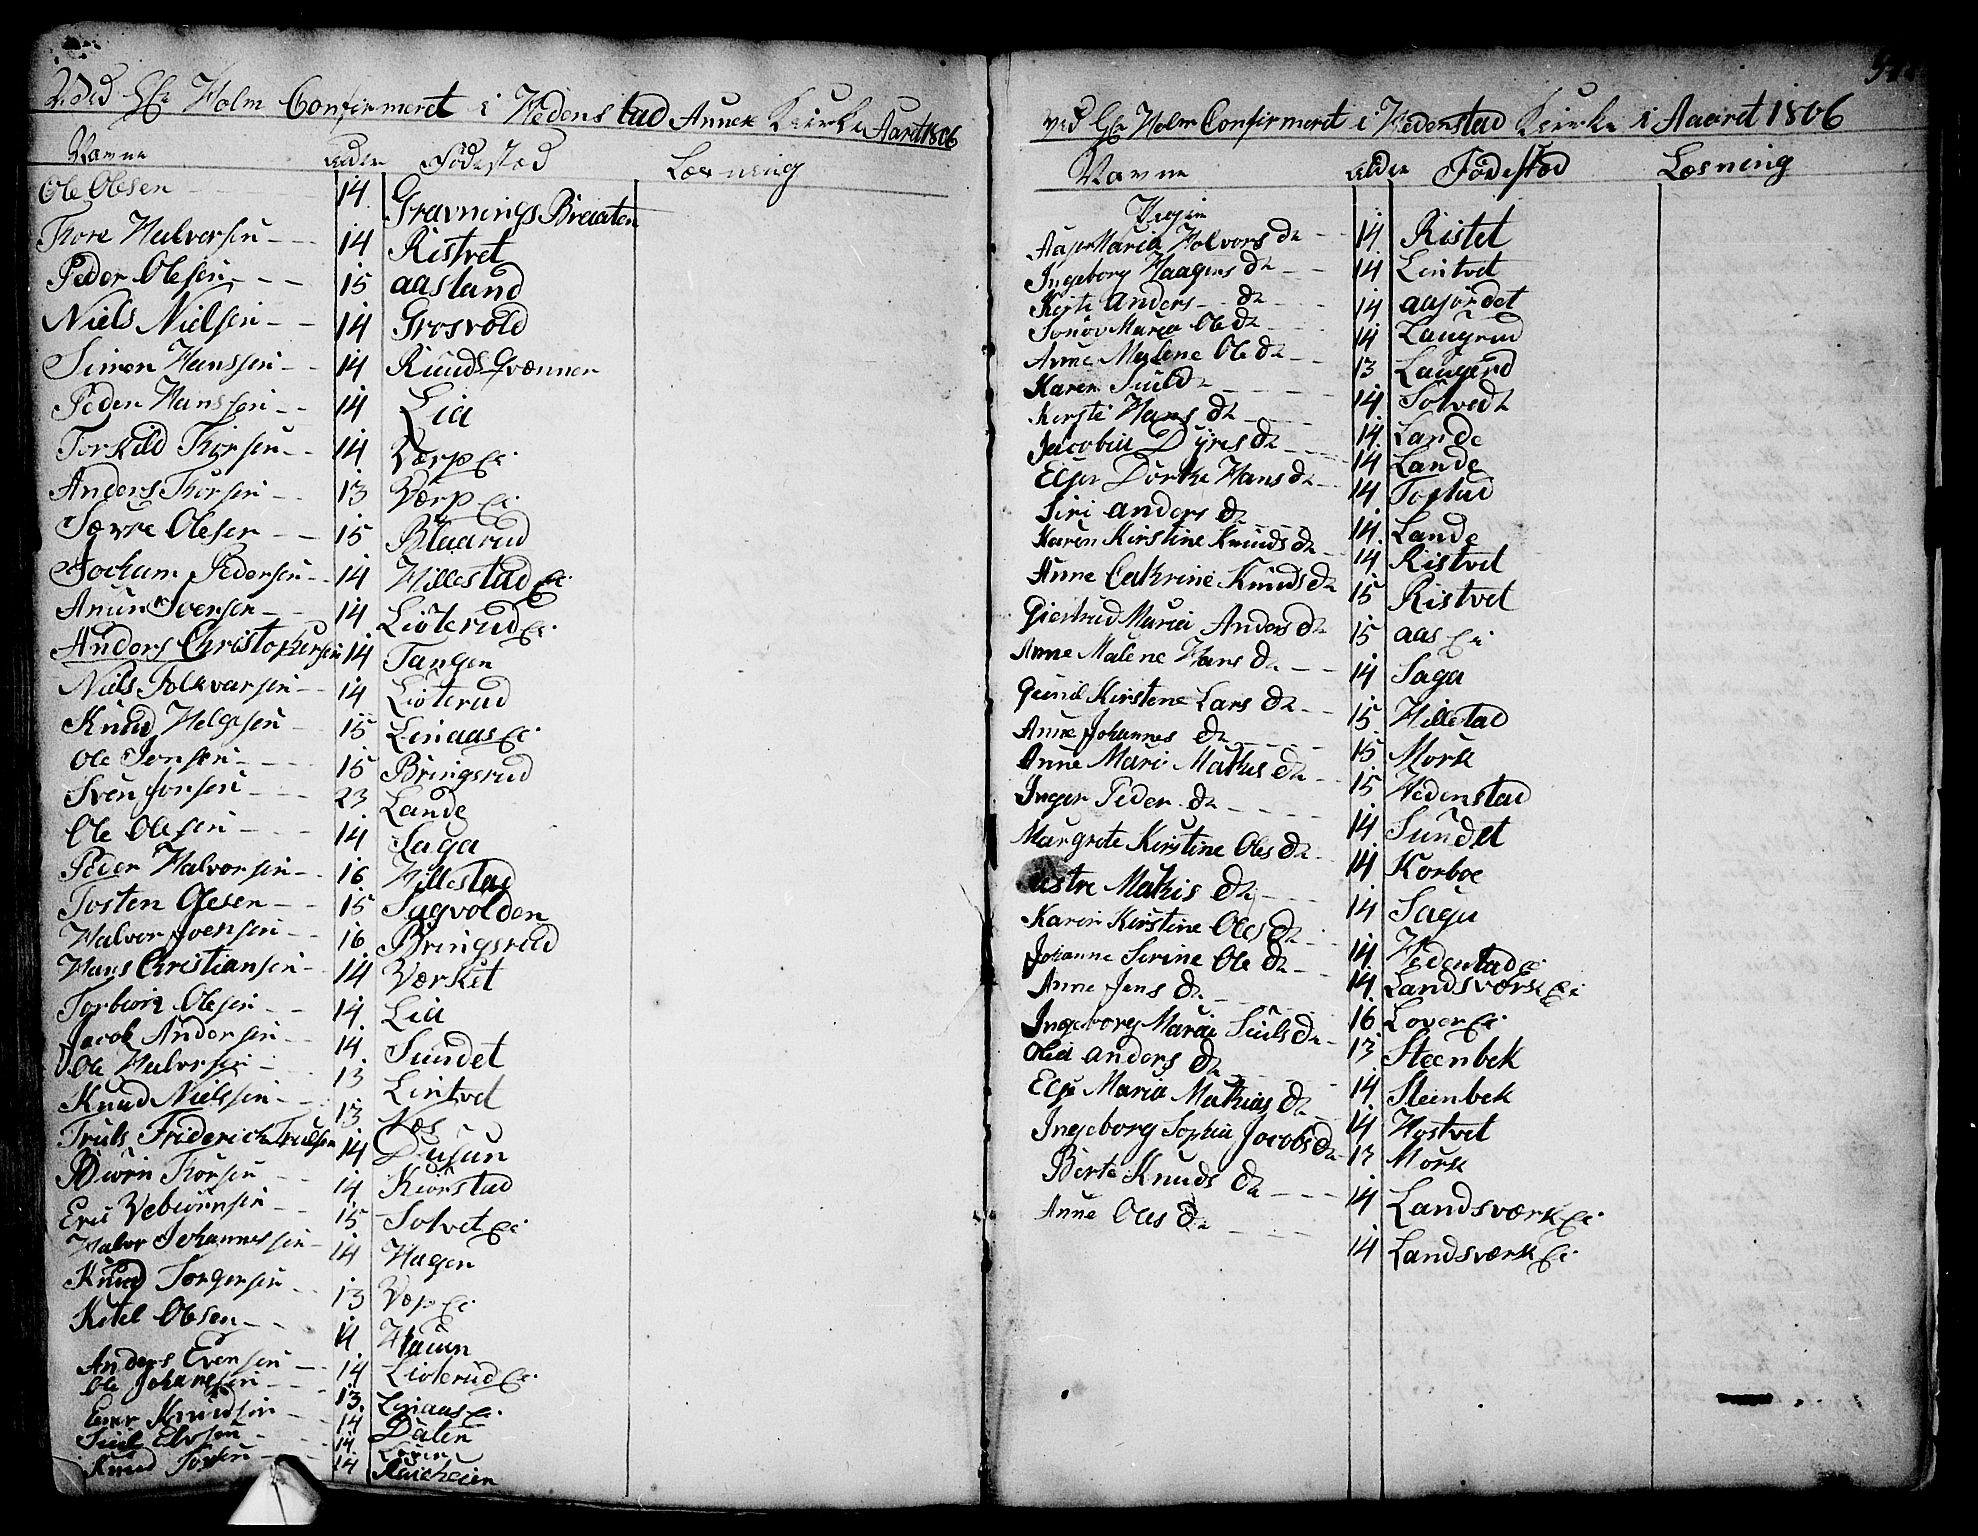 Ved Hr Holm Confirmeret i Hedenstad Annex Kirke Aaret 1806
Navne Alder Fødestæd Læsning
Ole Olesen 14 Gravnings Braaten
Thore Halvorsen 14 Ristvet
Peder Olesen 15 aasland
Niels Nielsen 14 Grosvold
Simon Hanssen 14 Ruuds Qvænnen
Peder Hanssen 14 Lia
Torkild Thorsen 14 Værp Ei
Anders Thorsen 13 Værp Ei
Særre Olesen 15 Blaarud
Jochum Pedersen 14 Hillestad Ei
Svensen 14 Liøterud Ei
Anders Christophersen 14 Tangen
Niels Folkvarsen 14 Liøterud
Knud Helgesen 15 Linaas Ei
Ole Jonsen 15 Bringsrud
Sven Jonsen 23 Lande
Ole Olesen 14 Saga
Peder Halvorsen 16 Hillestad
Tosten Olesen 15 Sugvolden
Halvor Svensen 16 Bringsrud
Hans Christiansen 14 Værket
Torbiørn Olesen 14 Lia
Jacob Andersen 14 Sundet
Ole Halvorsen 13 Lintvet
Knud Nielssen 13 Næs
Truls Friderich Trulsen 14
Biørn Thorsen 14 Kiørstad
Vebiørnsen 15 Solvet Ei
Halvor Johannessen 14 Hagen
Knud Torgersen 13 Væp Ei
Ketel Olsen 14
Anders Evensen 14 Liøterud Ei
Ole Johannessen 13 Linaas Ei
Knudsen 14 Dalen
14
Knud 14
ved Hr Holm Confirmeret i Hedenstad Kirke i Aaret 1806
Navne Alder Fødestæd Læsning
Piger
Maria Halvors Dr 14 Ristet
Ingeborg Haagens Dr 14 Lintvet
Anders Dr 14 aasjordet
Maria Ole Dr 14 Laugrud
Anne Malene Ole Dr 13 Laugerd
Karen Juul Dr 14 Solvedt
Kirsti Hans Dr 14 Lande
Jacobin Dyres Dr 14 Lande
Dorthe Hans Dr 14 Tostud
Siri anders Dr 14 Lande
Karen Kirstine Knuds Dr 14 Ristvet
Anne Cathrine Knuds Dr 15 Ristvet
Giertrud Maria Anders Dr 15 aas Ei
Anne Malene Hans Dr 14 Saga
Gunil Kirstene Lars Dr 15 Hillestad
Anne Johannes Dr 15 Mørk
Anne Mari Mathis Dr 15 Hedenstad
Inger Peder Dr 14 Sundet
Margrete Kirstine Oles Dr 14 Korboe
Mathis Dr 14 Saga
Karen Kirstine Oles Dr 14 Hedenstad Ei
Johanne Serine Ole Dr 14 Landsværk Ei
Anne Jens Dr 16 Lover Ei
Ingeborg Maria Juuls Dr 13 Steenbek
Olia anders Dr 14 Steenbek
Maria Mathias Dr 14 Hostvet
Ingeborg Sophia Jacobs Dr 13 Mørk
Berte Knuds Dr 14 Landsværk Ei
Anne Oles Dr 14 Landsværk Ei